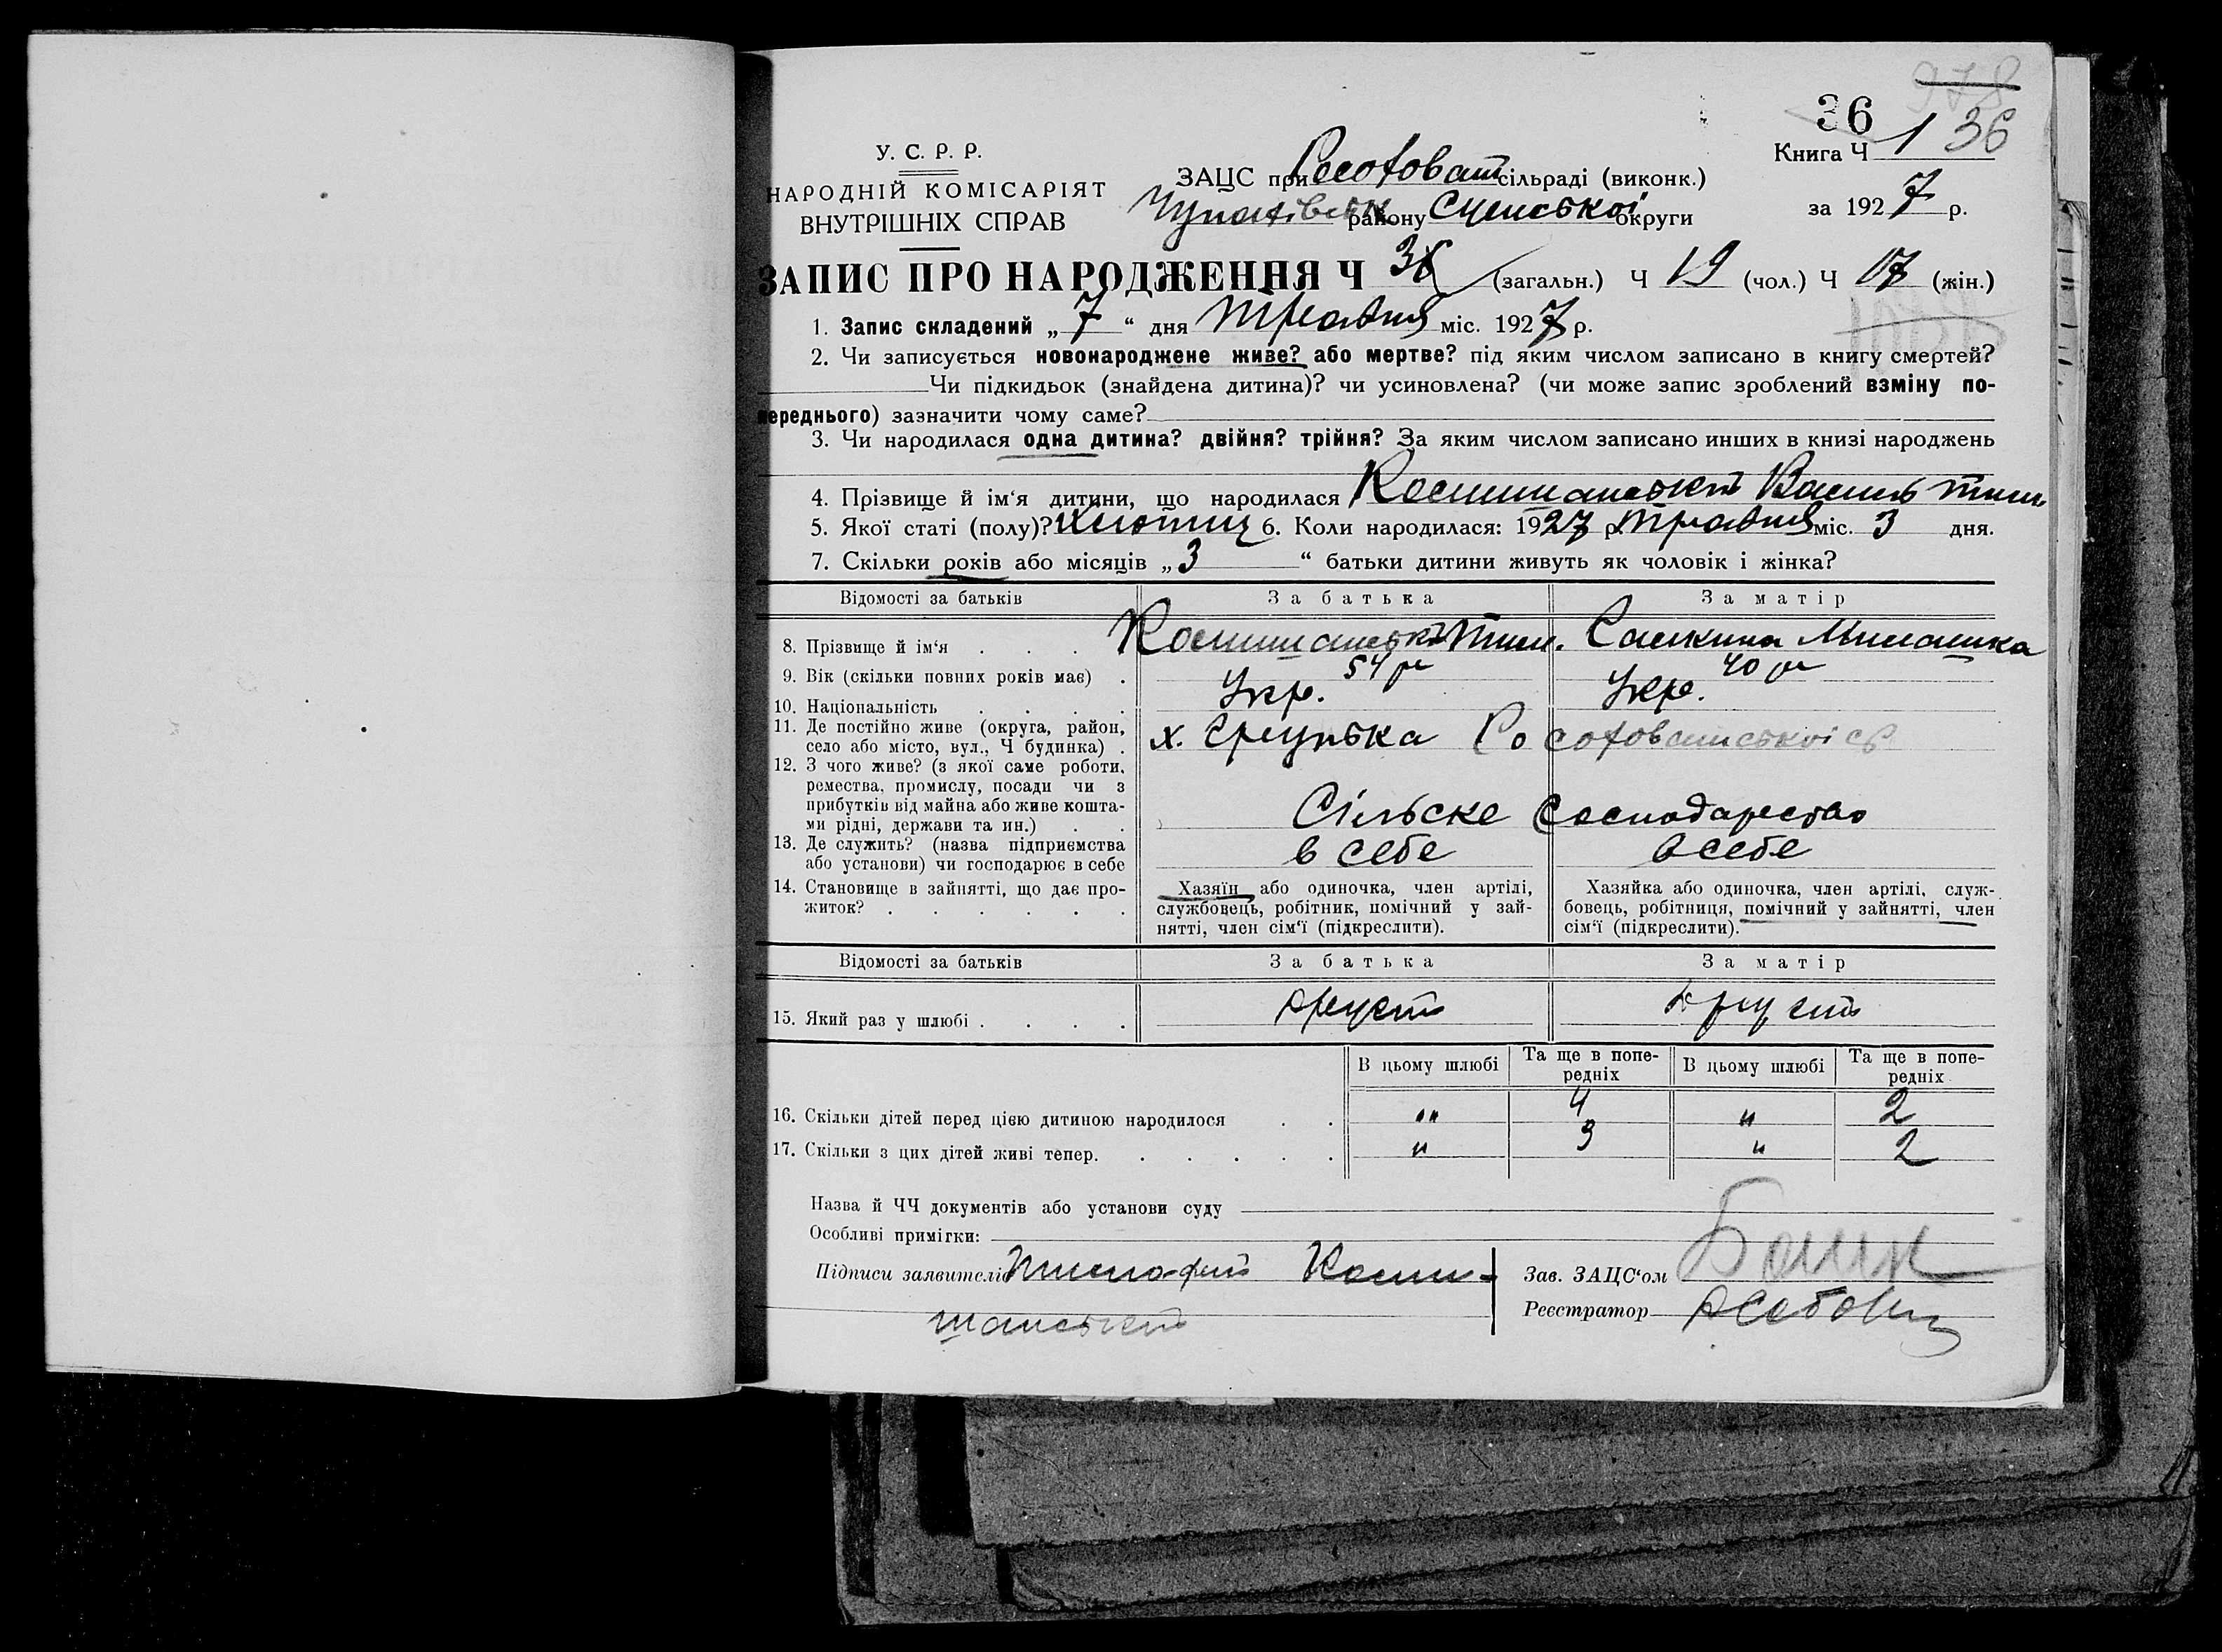 978
36
У. С. Р. Р.
НАРОДНІЙ КОМІСАРІЯТ
ВНУТРІШНІХ СПРАВ
Книга Ч 1 36
за 1927 р.
ЗАЦС при сільраді (виконк.)
району Сумської округи
ЗАПИС ПРО НАРОДЖЕННЯ Ч 36 (загальн.) Ч 19 (чол.) Ч 17 (жін.)
1. Запис складений „ 7 “ дня Травня міс. 1927 р.
2. Чи записується новонароджене живе? або мертве? під яким числом записано в книгу смертей?
Чи підкидьок (знайдена дитина)? чи усиновлена? (чи може запис зроблений взміну по-
переднього) зазначити чому саме?
3. Чи народилася одна дитина? двійня? трійня? За яким числом записано инших в книзі народжень
4. Прізвище й ім‘я дитини, що народилася Василь Тим.
5. Якої статі (полу)? Хлопиц 6. Коли народилася: 1927 р. Травня міс. 3 дня.
7. Скільки років або місяців „ 3 “ батьки дитини живуть як чоловік і жінка?
Відомості за батьків За батька За матір
8. Прізвище й ім‘я . . . Тим.
9. Вік (скільки повних років має) . 54 р 40 р
10. Національність . . . . Укр. Укр.
11. Де постійно живе (округа, район,
село або місто, вул., Ч будинка) . х.
12. З чого живе? (з якої саме роботи,
ремества, промислу, посади чи з
прибутків від майна або живе кошта-
ми рідні, держави та ин.) . . Сільске Господарство
13. Де служить? (назва підприємства
або установи) чи господарює в себе в себе в себе
14. Становище в зайнятті, що дає про-
житок? . . . . . .
Хазяїн або одиночка, член артілі,
службовець, робітник, помічний у зай-
нятті, член сім‘ї (підкреслити).
Хазяйка або одиночка, член артілі, служ-
бовець, робітниця, помічний у зайнятті, член
сім‘ї (підкреслити).
Відомості за батьків За батька За матір
15. Який раз у шлюбі . . . . другий другий
В цьому шлюбі Та ще в попе-редніх В цьому шлюбі Та ще в попе-редніх
16. Скільки дітей перед цією дитиною народилося . . „ 4 „ 2
17. Скільки з цих дітей живі тепер. . . . . . „ 3 „ 2
Назва й ЧЧ документів або установи суду
Особливі примітки:
Підписи заявителів
Зав. ЗАЦС‘ом
Реєстратор